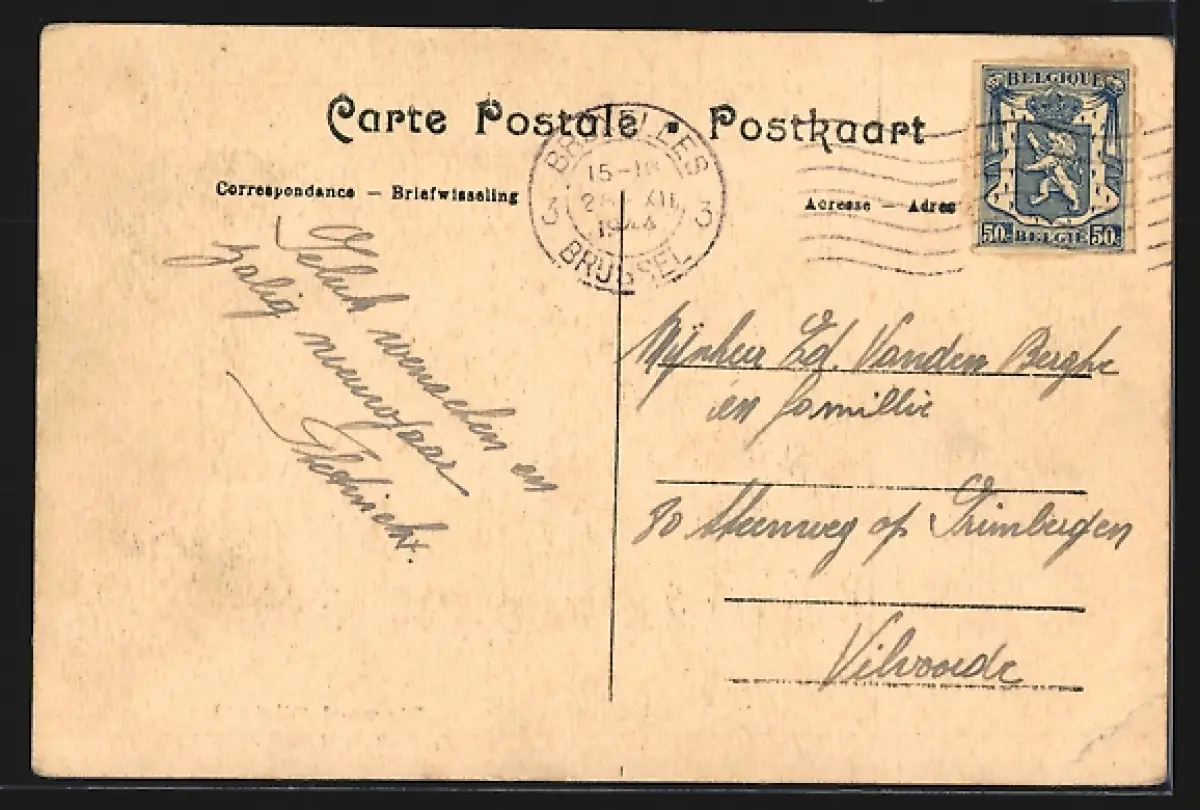 Carte Postale • Postkaart
Correspondance — Briefwisseling
Adresse — Adres
BRUXELLES
15-1
XII
1944
3 3
BRUSSEL
BELGIQUE
50c BELGIË 50c
Geluk wenschen en
zalig nieuwjaar
Mijnheer Ed. Vanden Berghe
en famillie
80 Steenweg op Grimbergen
Vilvoorde